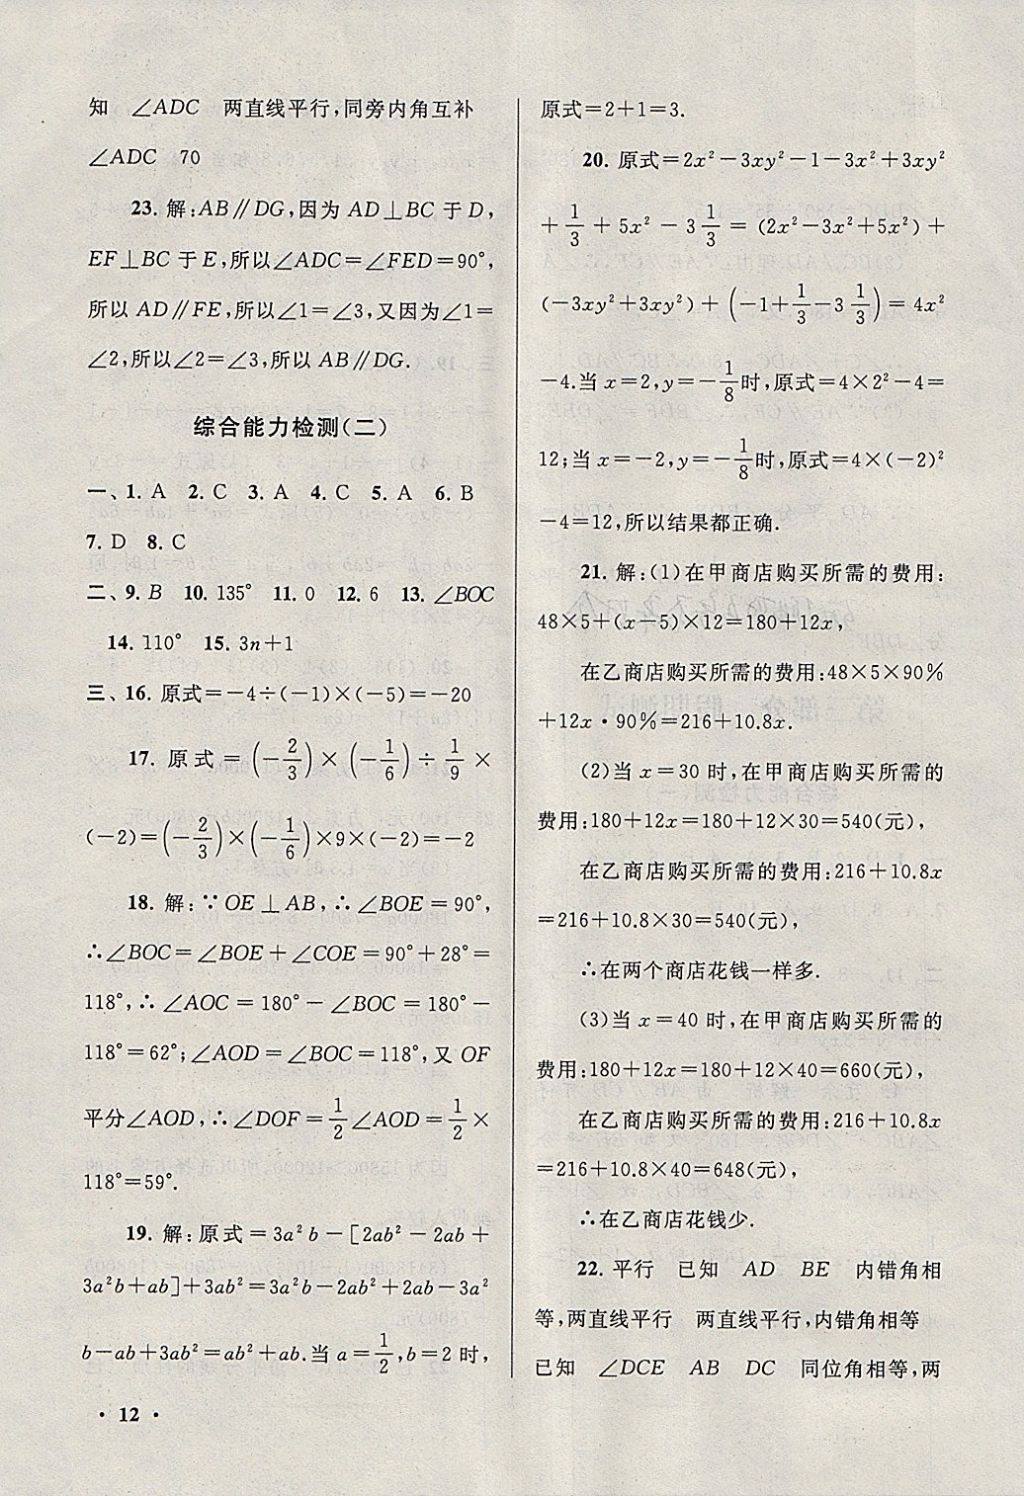 知　∠ADC　两直线平行,同旁内角互补
∠ADC　70
23. 解:AB∥DG,因为 AD⊥BC 于 D,
EF⊥BC 于 E,所以∠ADC=∠FED=90°,
所以 AD∥FE,所以∠1=∠3,又因为∠1=
∠2,所以∠2=∠3,所以 AB∥DG.
综合能力检测(二)
一、1. A　2. C　3. A　4. C　5. A　6. B
7. D　8. C
二、9. B　10. 135°　11. 0　12. 6　13. ∠BOC
14. 110°　15. 3n+1
三、16. 原式=-4÷(-1)×(-5)=-20
17. 原式=(-2/3)×(-1/6)÷1/9×
(-2)=(-2/3)×(-1/6)×9×(-2)=-2
18. 解:∵OE⊥AB,∴∠BOE=90°,
∴∠BOC=∠BOE+∠COE=90°+28°=
118°,∴∠AOC=180°-∠BOC=180°-
118°=62°;∠AOD=∠BOC=118°,又 OF
平分∠AOD,∴∠DOF=1/2∠AOD=1/2×
118°=59°.
19. 解:原式=3a²b-[2ab²-2ab+
3a²b+ab]+3ab²=3a²b-2ab²+2ab-3a²
b-ab+3ab²=ab²+ab.当 a=1/2,b=2 时,
· 12 ·
原式=2+1=3.
20. 原式=2x²-3xy²-1-3x²+3xy²
+1/3+5x²-3 1/3=(2x²-3x²+5x²)+
(-3xy²+3xy²)+(-1+1/3-3 1/3)=4x²
-4.当 x=2,y=-1/8时,原式=4×2²-4=
12;当 x=-2,y=-1/8时,原式=4×(-2)²
-4=12,所以结果都正确.
21. 解:(1)在甲商店购买所需的费用:
48×5+(x-5)×12=180+12x,
在乙商店购买所需的费用:48×5×90%
+12x·90%=216+10.8x.
(2)当 x=30 时,在甲商店购买所需的
费用:180+12x=180+12×30=540(元),
在乙商店购买所需的费用:216+10.8x
=216+10.8×30=540(元),
∴在两个商店花钱一样多.
(3)当 x=40 时,在甲商店购买所需的
费用:180+12x=180+12×40=660(元),
在乙商店购买所需的费用:216+10.8x
=216+10.8×40=648(元),
∴在乙商店花钱少.
22. 平行　已知　AD　BE　内错角相
等,两直线平行　两直线平行,内错角相等
已知　∠DCE　AB　DC　同位角相等,两